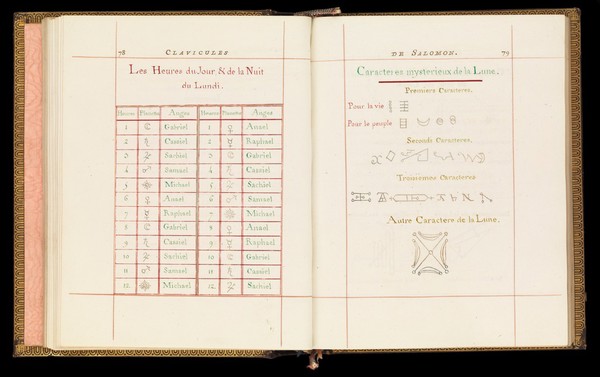 78
CLAVICULES
Les Heures du Jour & de la Nuit
du Lundi.
Heures Planetes Anges Heures Planetes Anges
1 ☾ Gabriel 1 ♀ Anael
2 ♄ Cassiel 2 ☿ Raphael
3 ♃ Sachiel 3 ☾ Gabriel
4 ♂ Samael 4 ♄ Cassiel
5 ☉ Michael 5 ♃ Sachiel
6 ♀ Anael 6 ♂ Samael
7 ☿ Raphael 7 ☉ Michael
8 ☾ Gabriel 8 ♀ Anael
9 ♄ Cassiel 9 ☿ Raphael
10 ♃ Sachiel 10 ☾ Gabriel
11 ♂ Samael 11 ♄ Cassiel
12. ☉ Michael 12. ♃ Sachiel
DE SALOMON.
79
Caracteres mysterieux de la Lune.
Premiers Caracteres.
Pour la vie
Pour le peuple
Seconds Caracteres.
Troisiemes Caracteres
Autre Caractere de la Lune.